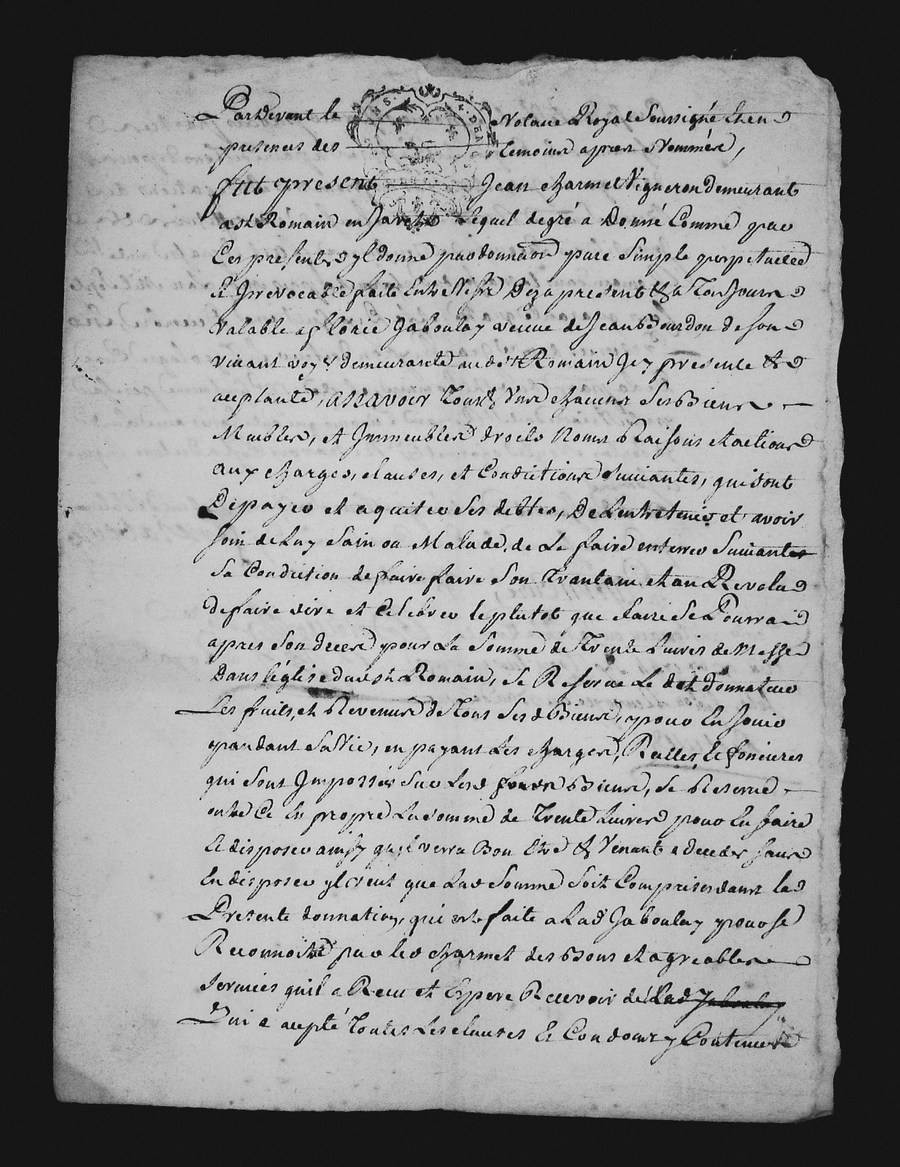 Pardevant le Notaire Royal Soussigné et en
presences des temoins apres Nommés,
fut present Jean charmet Vigneron demeurant
a st Romain en Jarest Lequel de gré a Donné Comme par
Ces presentes yl donne par donnation pure Simple perpetuelle
et Jrevocable faite Entre Vifs Deza present & a Tousjours
valable a Jaboulay veuve de Jean Bourdon de son
vivant demeurante au dt st Romain Jcy presente &
aceptante, assavoir Tous & Uns chacuns Ses Biens
Meubles, et Jmmeubles droits Noms Raisons et actions
aux charges, clauses, et Condictions suivantes, qui sont
De payer et aquiter Ses debtes, De Lentretenir et avoir
soin de Luy Sain ou Malade, de Le faire enterrer Suivant
Sa Condiction de faire faire Son Trantain et an Revolu
de faire dire et Celebrer le plutot que faire Se Pourra
apres Son deces pour La Somme de Trente Livres de Messe
Dans léglise dud st Romain, Se Reserve Le dit donnateur
Les fruits, et Revenus de Tous Ses d Biens, pour En Jouir
pandant Sa Vie, en payant Les charges, Rêelles, & foncieres
qui sont Jmpossés Sur Lesd Biens, Se Reserve
outre Ce En propre La somme de Trente Livres pour En faire
Et disposer ainsy quil verra Bon Etre & Venant a deceder sans
En disposer yl veut que Lad Somme soit Comprise dans la
Presente donnation, qui est faite a Lad Jaboulay pour se
Reconnoitre par led charmet des Bons et agreables
services quil a Recu et Espere Recevoir de Lad Jaboulay
Qui a acepté Toutes Les clauses Et Condons y Contenues